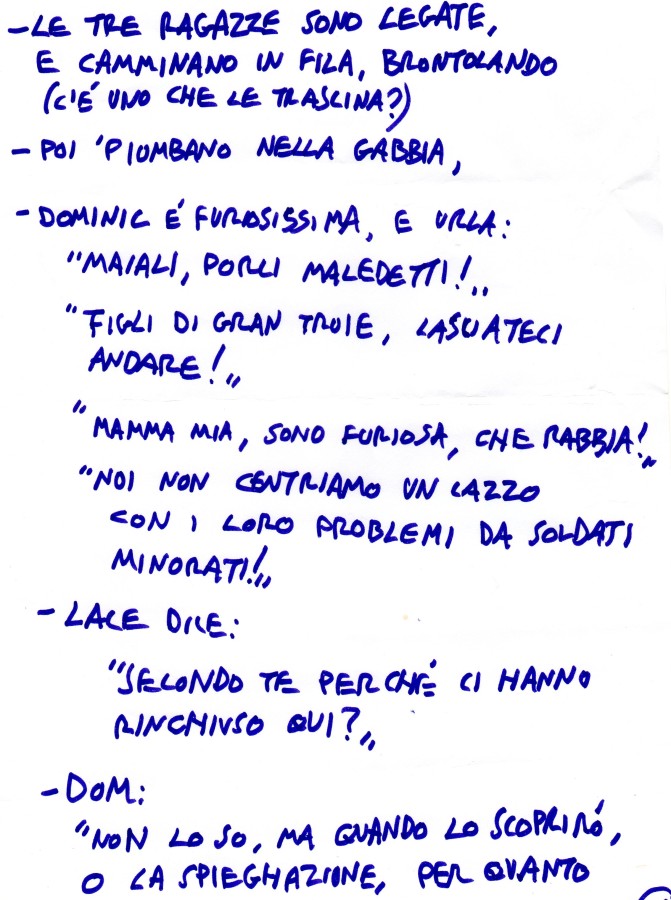 - LE TRE RAGAZZE SONO LEGATE,
E CAMMINANO IN FILA, BRONTOLANDO
(C'È UNO CHE LE TRASCINA?)
- POI 'PIOMBANO NELLA GABBIA,
- DOMINIC È FURIOSISSIMA, E URLA:
"MAIALI, PORCI MALEDETTI!"
"FIGLI DI GRAN TROIE, LASCIATECI
ANDARE!"
"MAMMA MIA, SONO FURIOSA, CHE RABBIA!"
"NOI NON CENTRIAMO UN CAZZO
CON I LORO PROBLEMI DA SOLDATI
MINORATI!"
- LACE DICE:
"SECONDO TE PERCHÉ CI HANNO
RINCHIUSO QUI?"
- DOM:
"NON LO SO, MA QUANDO LO SCOPRIRÓ,
O LA SPIEGHAZIONE, PER QUANTO